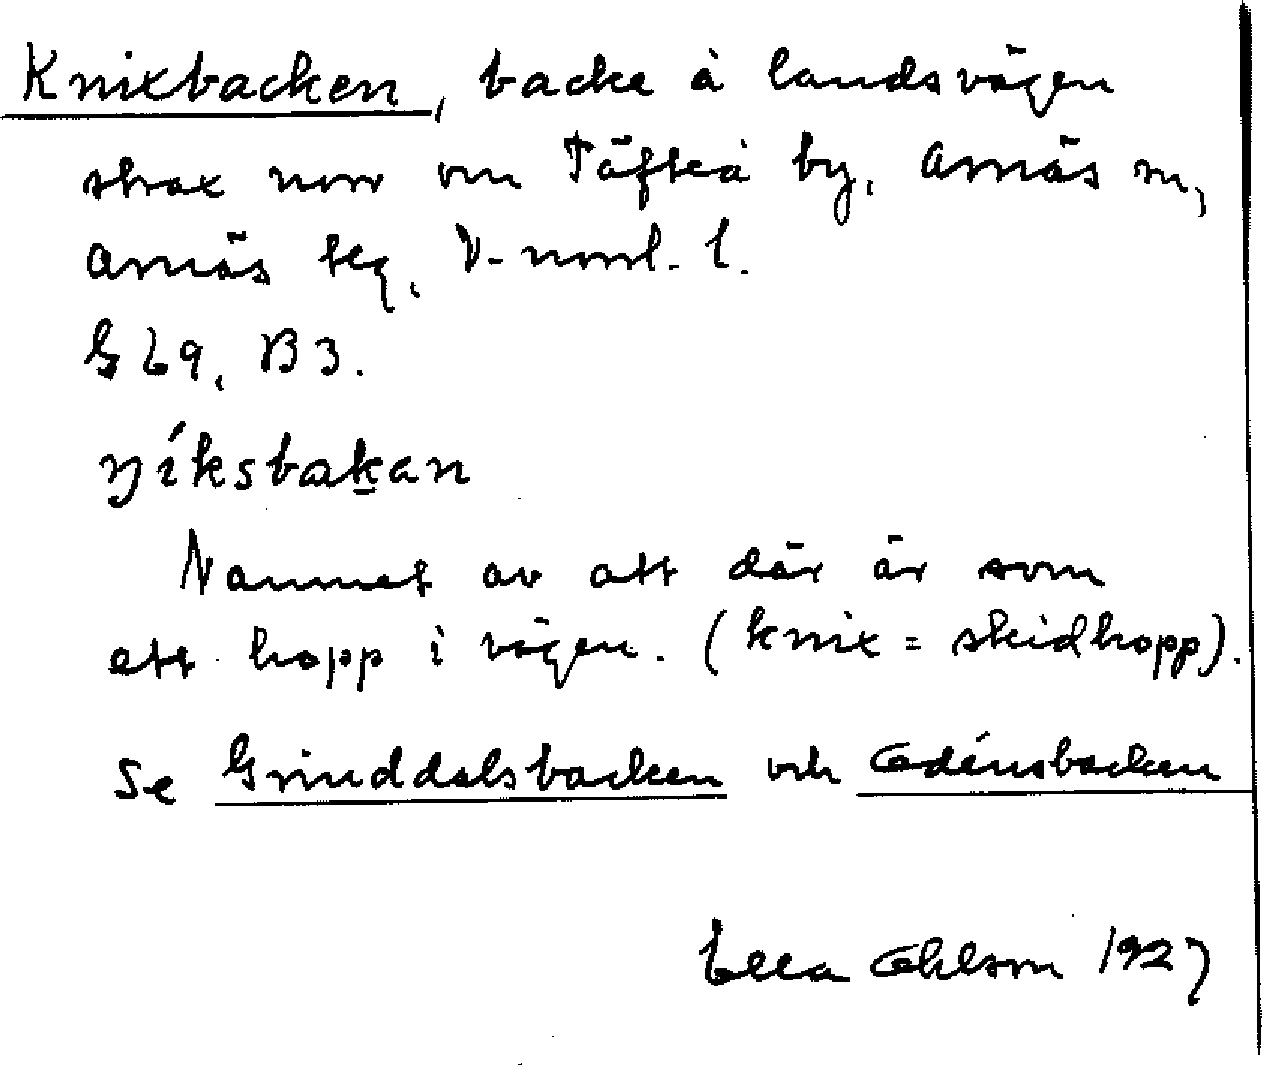 Knixbacken, backe å landsvägen
strax norr om Täfteå by, Arnäs sn,
Arnäs tg, V-norrl. l.
G 69, B3.
ŋíksbakan
Namnet av att där är som
ett hopp i vägen. (knix = skidhopp).
Se Grinddalsbacken och Edénsbacken
Ella Ohlson 1927